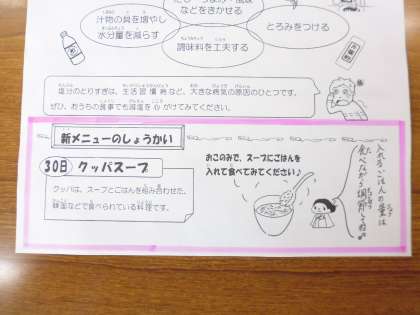 などをきかせる
汁物の具を増やし
水分量を減らす
とろみをつける
調味料を工夫する
塩分のとりすぎは、生活習慣病など、大きな病気の原因のひとつです。
ぜひ、おうちの食事でも減塩を心がけてみてください。
新メニューのしょうかい
30日 クッパスープ
クッパは、スープとごはんを組み合わせた、
韓国などで食べられている料理です。
おこのみで、スープにごはんを
入れて食べてみてください♪
入れるごはんの量は
食べながら調節してね